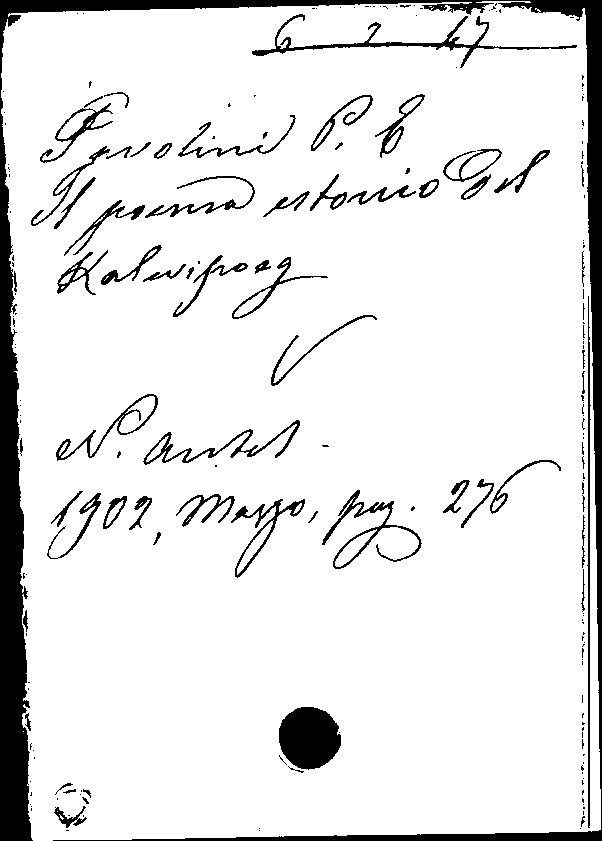 6 2 47
Pavolini P. E
Il poema estonico del
Kalevipoeg
N. Antol.
1902, Marzo, pag. 276